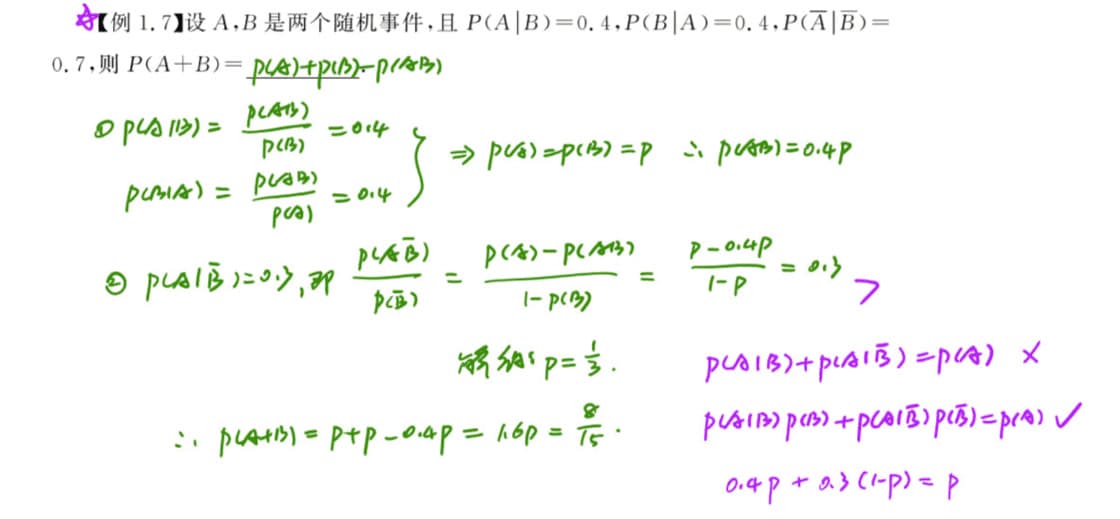 ☆【例 1.7】设 A,B 是两个随机事件,且 P(A|B)=0.4,P(B|A)=0.4,P(A̅|B̅)=
0.7,则 P(A+B)= P(A)+P(B)-P(AB)
① P(A|B) = P(AB)/P(B) = 0.4
P(B|A) = P(AB)/P(A) = 0.4
} ⇒ P(A)=P(B)=P ∴ P(AB)=0.4P
② P(A|B̅)=0.3, 即 P(AB̅)/P(B̅) = (P(A)-P(AB))/(1-P(B)) = (P-0.4P)/(1-P) = 0.3
解得: P = 1/3.
∴ P(A+B) = P+P-0.4P = 1.6P = 8/15.
P(A|B)+P(A|B̅)=P(A) ×
P(A|B)P(B)+P(A|B̅)P(B̅)=P(A) ✓
0.4P + 0.3(1-P) = P